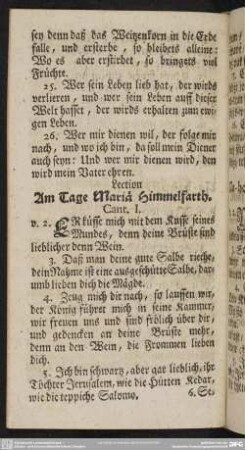 sey denn daß das Weitzenkorn in die Erde
falle, und ersterbe, so bleibets alleine:
Wo es aber erstirbet, so bringets viel
Früchte.
25. Wer sein Leben lieb hat, der wirds
verlieren, und wer sein Leben auff dieser
Welt hasset, der wirds erhalten zum ewi-
gen Leben.
26. Wer mir dienen wil, der folge mir
nach, und wo ich bin, da soll mein Diener
auch seyn: Und wer mir dienen wird, den
wird mein Vater ehren.
Lection
Am Tage Mariä Himmelfarth.
Cant. I.
v. 2. ERküsse mich mit dem Kusse seines
Mundes, denn deine Brüste sind
lieblicher denn Wein.
3. Daß man deine gute Salbe rieche,
dein Nahme ist eine ausgeschütte Salbe, dar-
umb lieben dich die Mägde.
4. Zeug mich dir nach, so lauffen wir,
der König führet mich in seine Kammer,
wir freuen uns und sind frölich über dir,
und gedencken an deine Brüste mehr,
denn an den Wein, die Frommen lieben
dich.
5. Ich bin schwartz, aber gar lieblich, ihr
Töchter Jerusalem, wie die Hütten Kedar,
wie die teppiche Salomo,
6. Se-